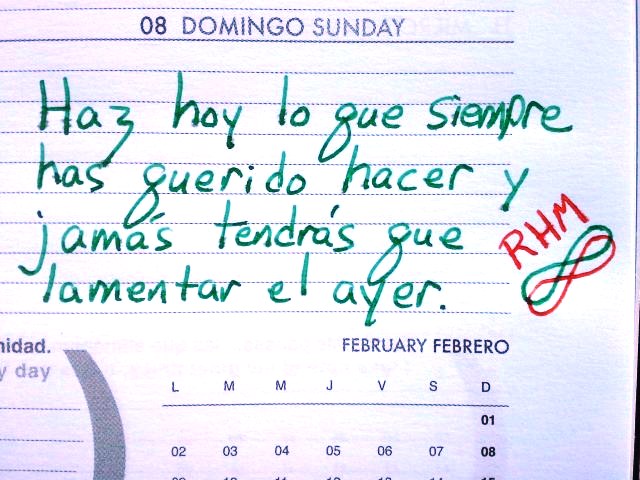 08 DOMINGO SUNDAY
Haz hoy lo que siempre
has querido hacer y
jamás tendrás que
lamentar el ayer.
RHM
nidad.
y day
FEBRUARY FEBRERO
L M M J V S D
01
02 03 04 05 06 07 08